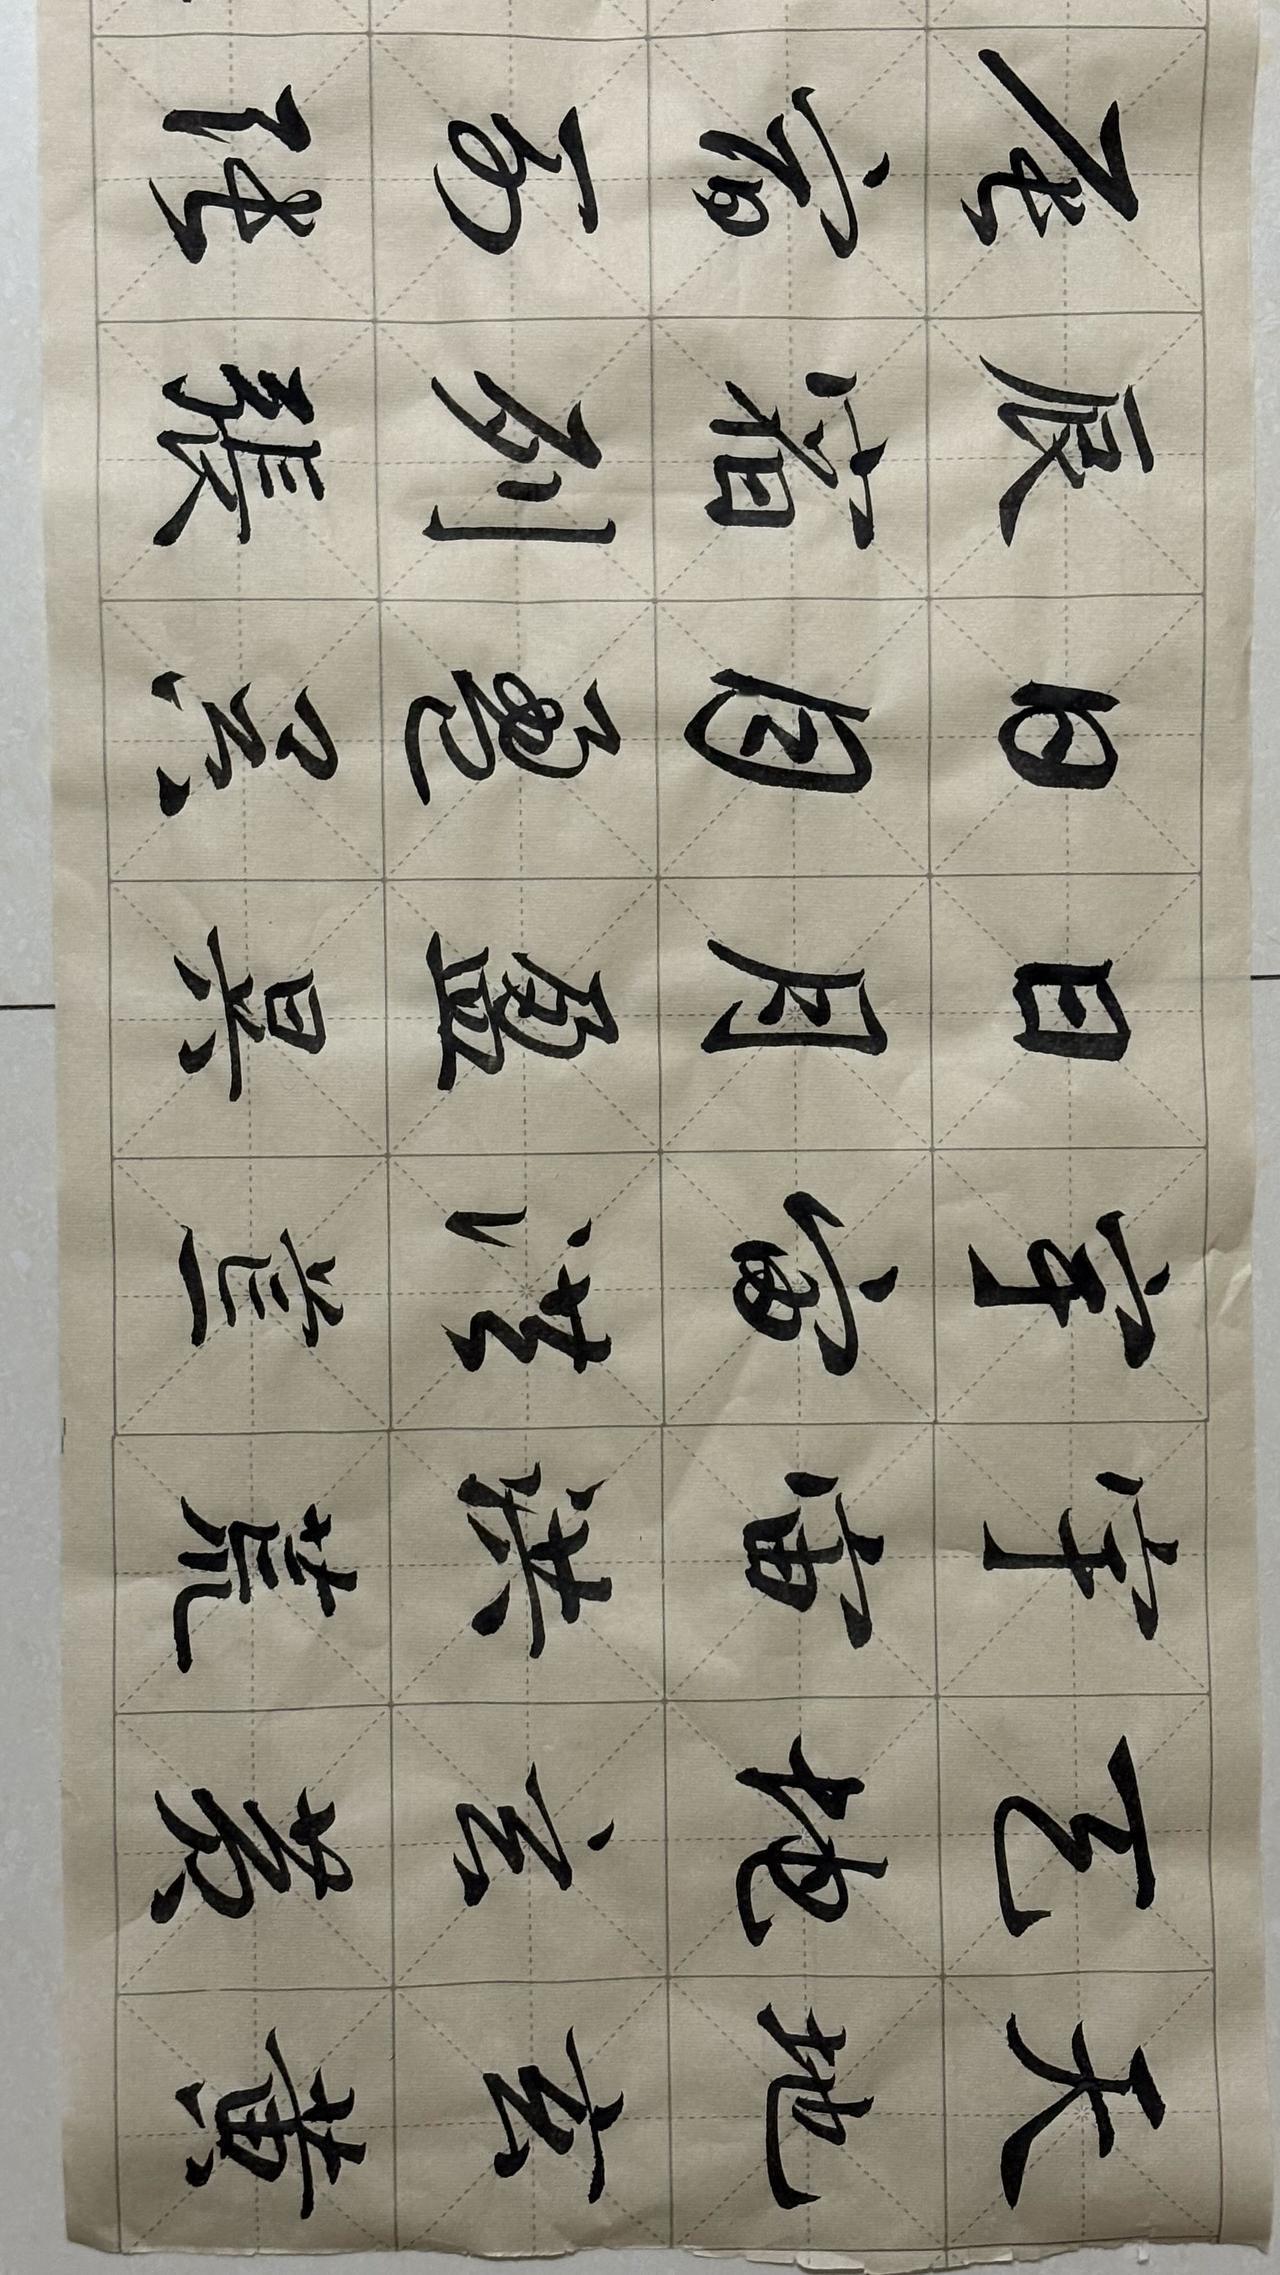 天地玄黃
天地玄黃
宇宙洪荒
宇宙洪荒
日月盈昃
日月盈昃
辰宿列張
辰宿列張